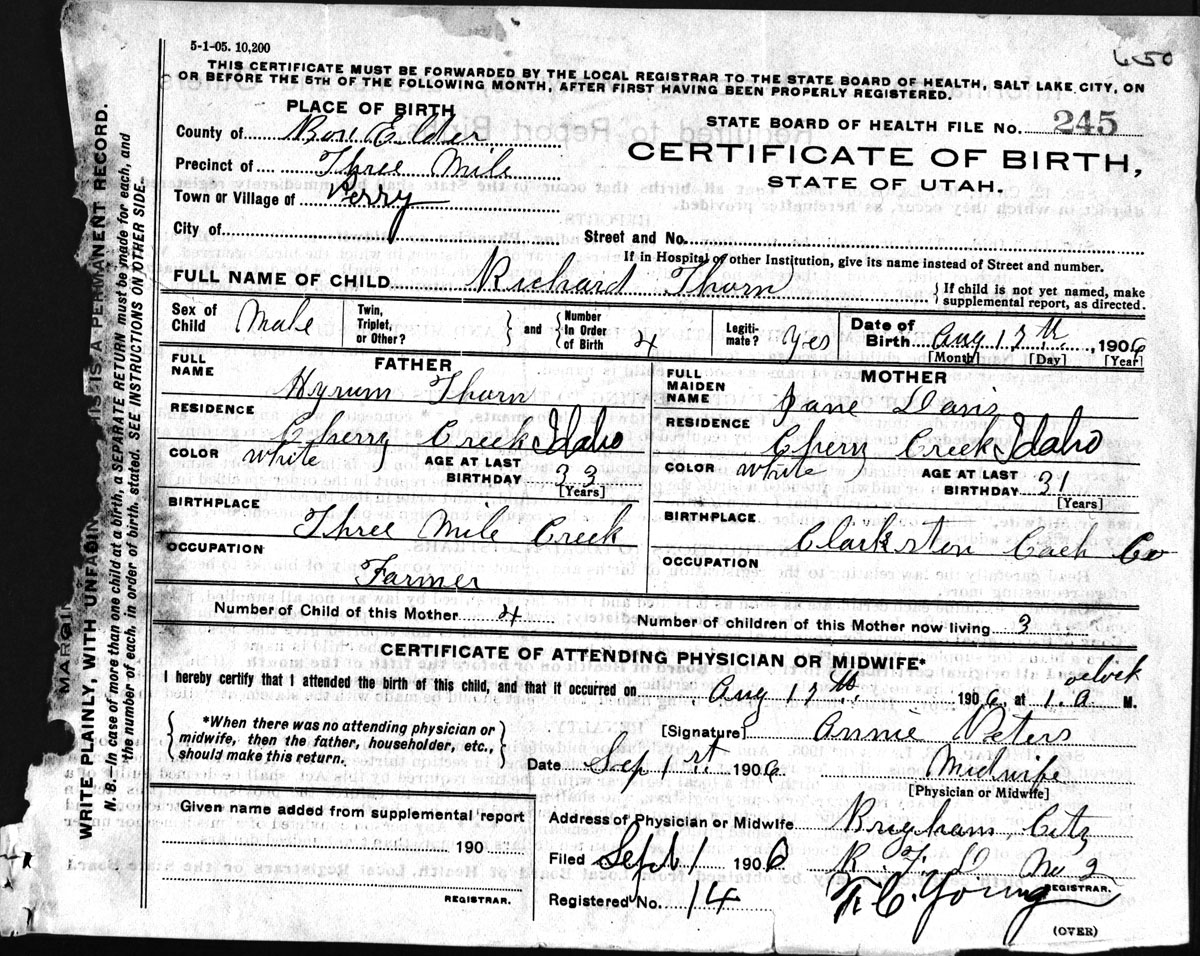 650
5-1-05. 10,200
THIS CERTIFICATE MUST BE FORWARDED BY THE LOCAL REGISTRAR TO THE STATE BOARD OF HEALTH, SALT LAKE CITY, ON
OR BEFORE THE 5TH OF THE FOLLOWING MONTH, AFTER FIRST HAVING BEEN PROPERLY REGISTERED.
PLACE OF BIRTH
County of Box Elder
Precinct of Three Mile
Town or Village of Perry
STATE BOARD OF HEALTH FILE No. 245
CERTIFICATE OF BIRTH,
STATE OF UTAH.
City of Street and No.
If in Hospital or other Institution, give its name instead of Street and number.
FULL NAME OF CHILD Richard Thorn
If child is not yet named, make
supplemental report, as directed.
Sex of Child Male
Twin, Triplet, or Other?
and
Number In Order of Birth 4
Legiti- mate? Yes
Date of Birth Aug 17th, 1906
[Month] [Day] [Year]
FATHER
FULL NAME Hyrum Thorn
RESIDENCE Cherry Creek Idaho
COLOR white AGE AT LAST BIRTHDAY 33
[Years]
BIRTHPLACE Three Mile Creek
OCCUPATION Farmer
MOTHER
FULL MAIDEN NAME Jane Davis
RESIDENCE Cherry Creek Idaho
COLOR white AGE AT LAST BIRTHDAY 31
[Years]
BIRTHPLACE Clarkston Cach Co
OCCUPATION
Number of Child of this Mother 4 Number of children of this Mother now living 3
CERTIFICATE OF ATTENDING PHYSICIAN OR MIDWIFE*
I hereby certify that I attended the birth of this child, and that it occurred on Aug 17th, 1906, at 1. a oclock M.
*When there was no attending physician or
midwife, then the father, householder, etc.,
should make this return.
[Signature] Annie Peters
Date Sep 1st 1906 Midwife
[Physician or Midwife]
Given name added from supplemental report
190
REGISTRAR.
Address of Physician or Midwife Brigham City
R. F. D No 2
Filed Sept 1 1906
Registered No. 14 T. C. Young
REGISTRAR.
(OVER)
MARGIN
WRITE PLAINLY, WITH UNFADIN THIS IS A PERMANENT RECORD.
N. B.—In case of more than one child at a birth, a SEPARATE RETURN must be made for each, and
the number of each, in order of birth, stated. SEE INSTRUCTIONS ON OTHER SIDE.